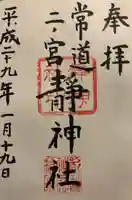 奉拝
常道
二ノ宮静神社
平成二十九年一月十九日